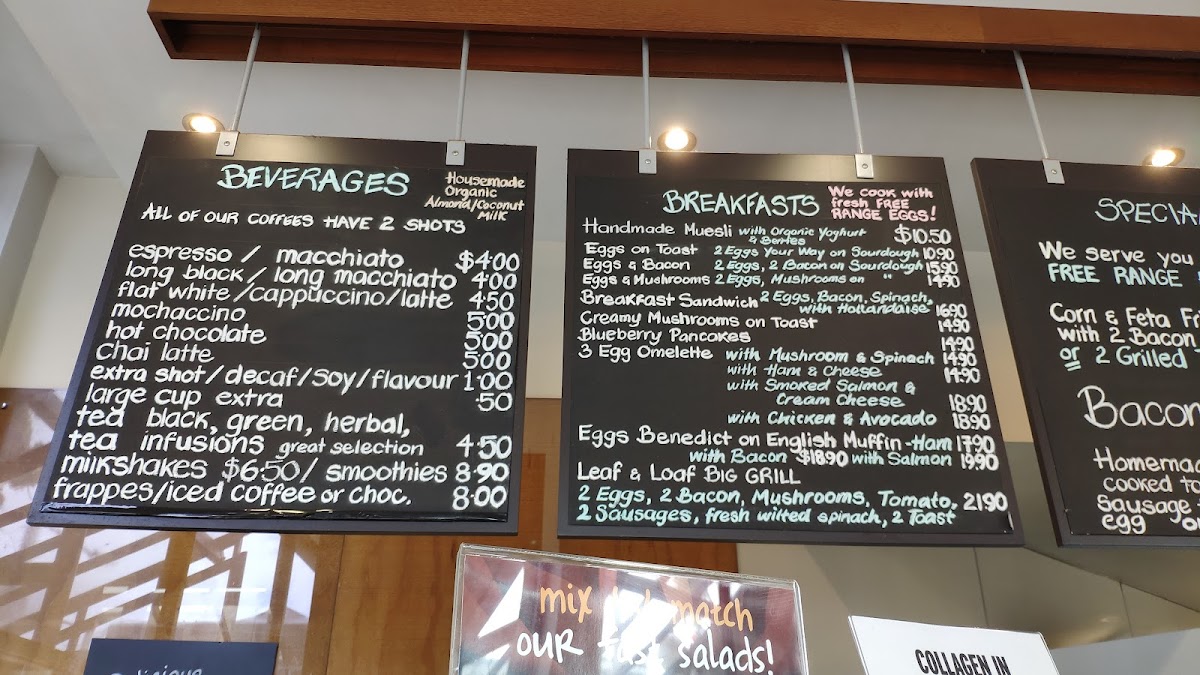 BEVERAGES
Housemade
Organic
Almond/Coconut
Milk
ALL OF OUR COFFEES HAVE 2 SHOTS
espresso / macchiato $4.00
long black / long macchiato 4.00
flat white / cappuccino / latte 4.50
mochaccino 5.00
hot chocolate 5.00
chai latte 5.00
extra shot / decaf / soy / flavour 1.00
large cup extra .50
tea black, green, herbal,
tea infusions great selection 4.50
milkshakes $6.50 / smoothies 8.90
frappes/iced coffee or choc. 8.00
BREAKFASTS
We cook with
fresh FREE
RANGE EGGS!
Handmade Muesli with Organic Yoghurt
& Berries $10.50
Eggs on Toast 2 Eggs Your Way on Sourdough 10.90
Eggs & Bacon 2 Eggs, 2 Bacon on Sourdough 15.90
Eggs & Mushrooms 2 Eggs, Mushrooms on " 14.90
Breakfast Sandwich 2 Eggs, Bacon, Spinach,
with Hollandaise 16.90
Creamy Mushrooms on Toast 14.90
Blueberry Pancakes 14.90
3 Egg Omelette with Mushroom & Spinach 14.90
with Ham & Cheese 14.90
with Smoked Salmon &
Cream Cheese 18.90
with Chicken & Avocado 18.90
Eggs Benedict on English Muffin - Ham 17.90
with Bacon $18.90 with Salmon 19.90
Leaf & Loaf BIG GRILL
2 Eggs, 2 Bacon, Mushrooms, Tomato, 21.90
2 Sausages, fresh wilted spinach, 2 Toast
SPECIA
We serve you
FREE RANGE
Corn & Feta Fri
with 2 Bacon
or 2 Grilled
Bacon
Homemad
cooked to
Sausage
egg
mix match
OUR salads!
COLLAGEN IN